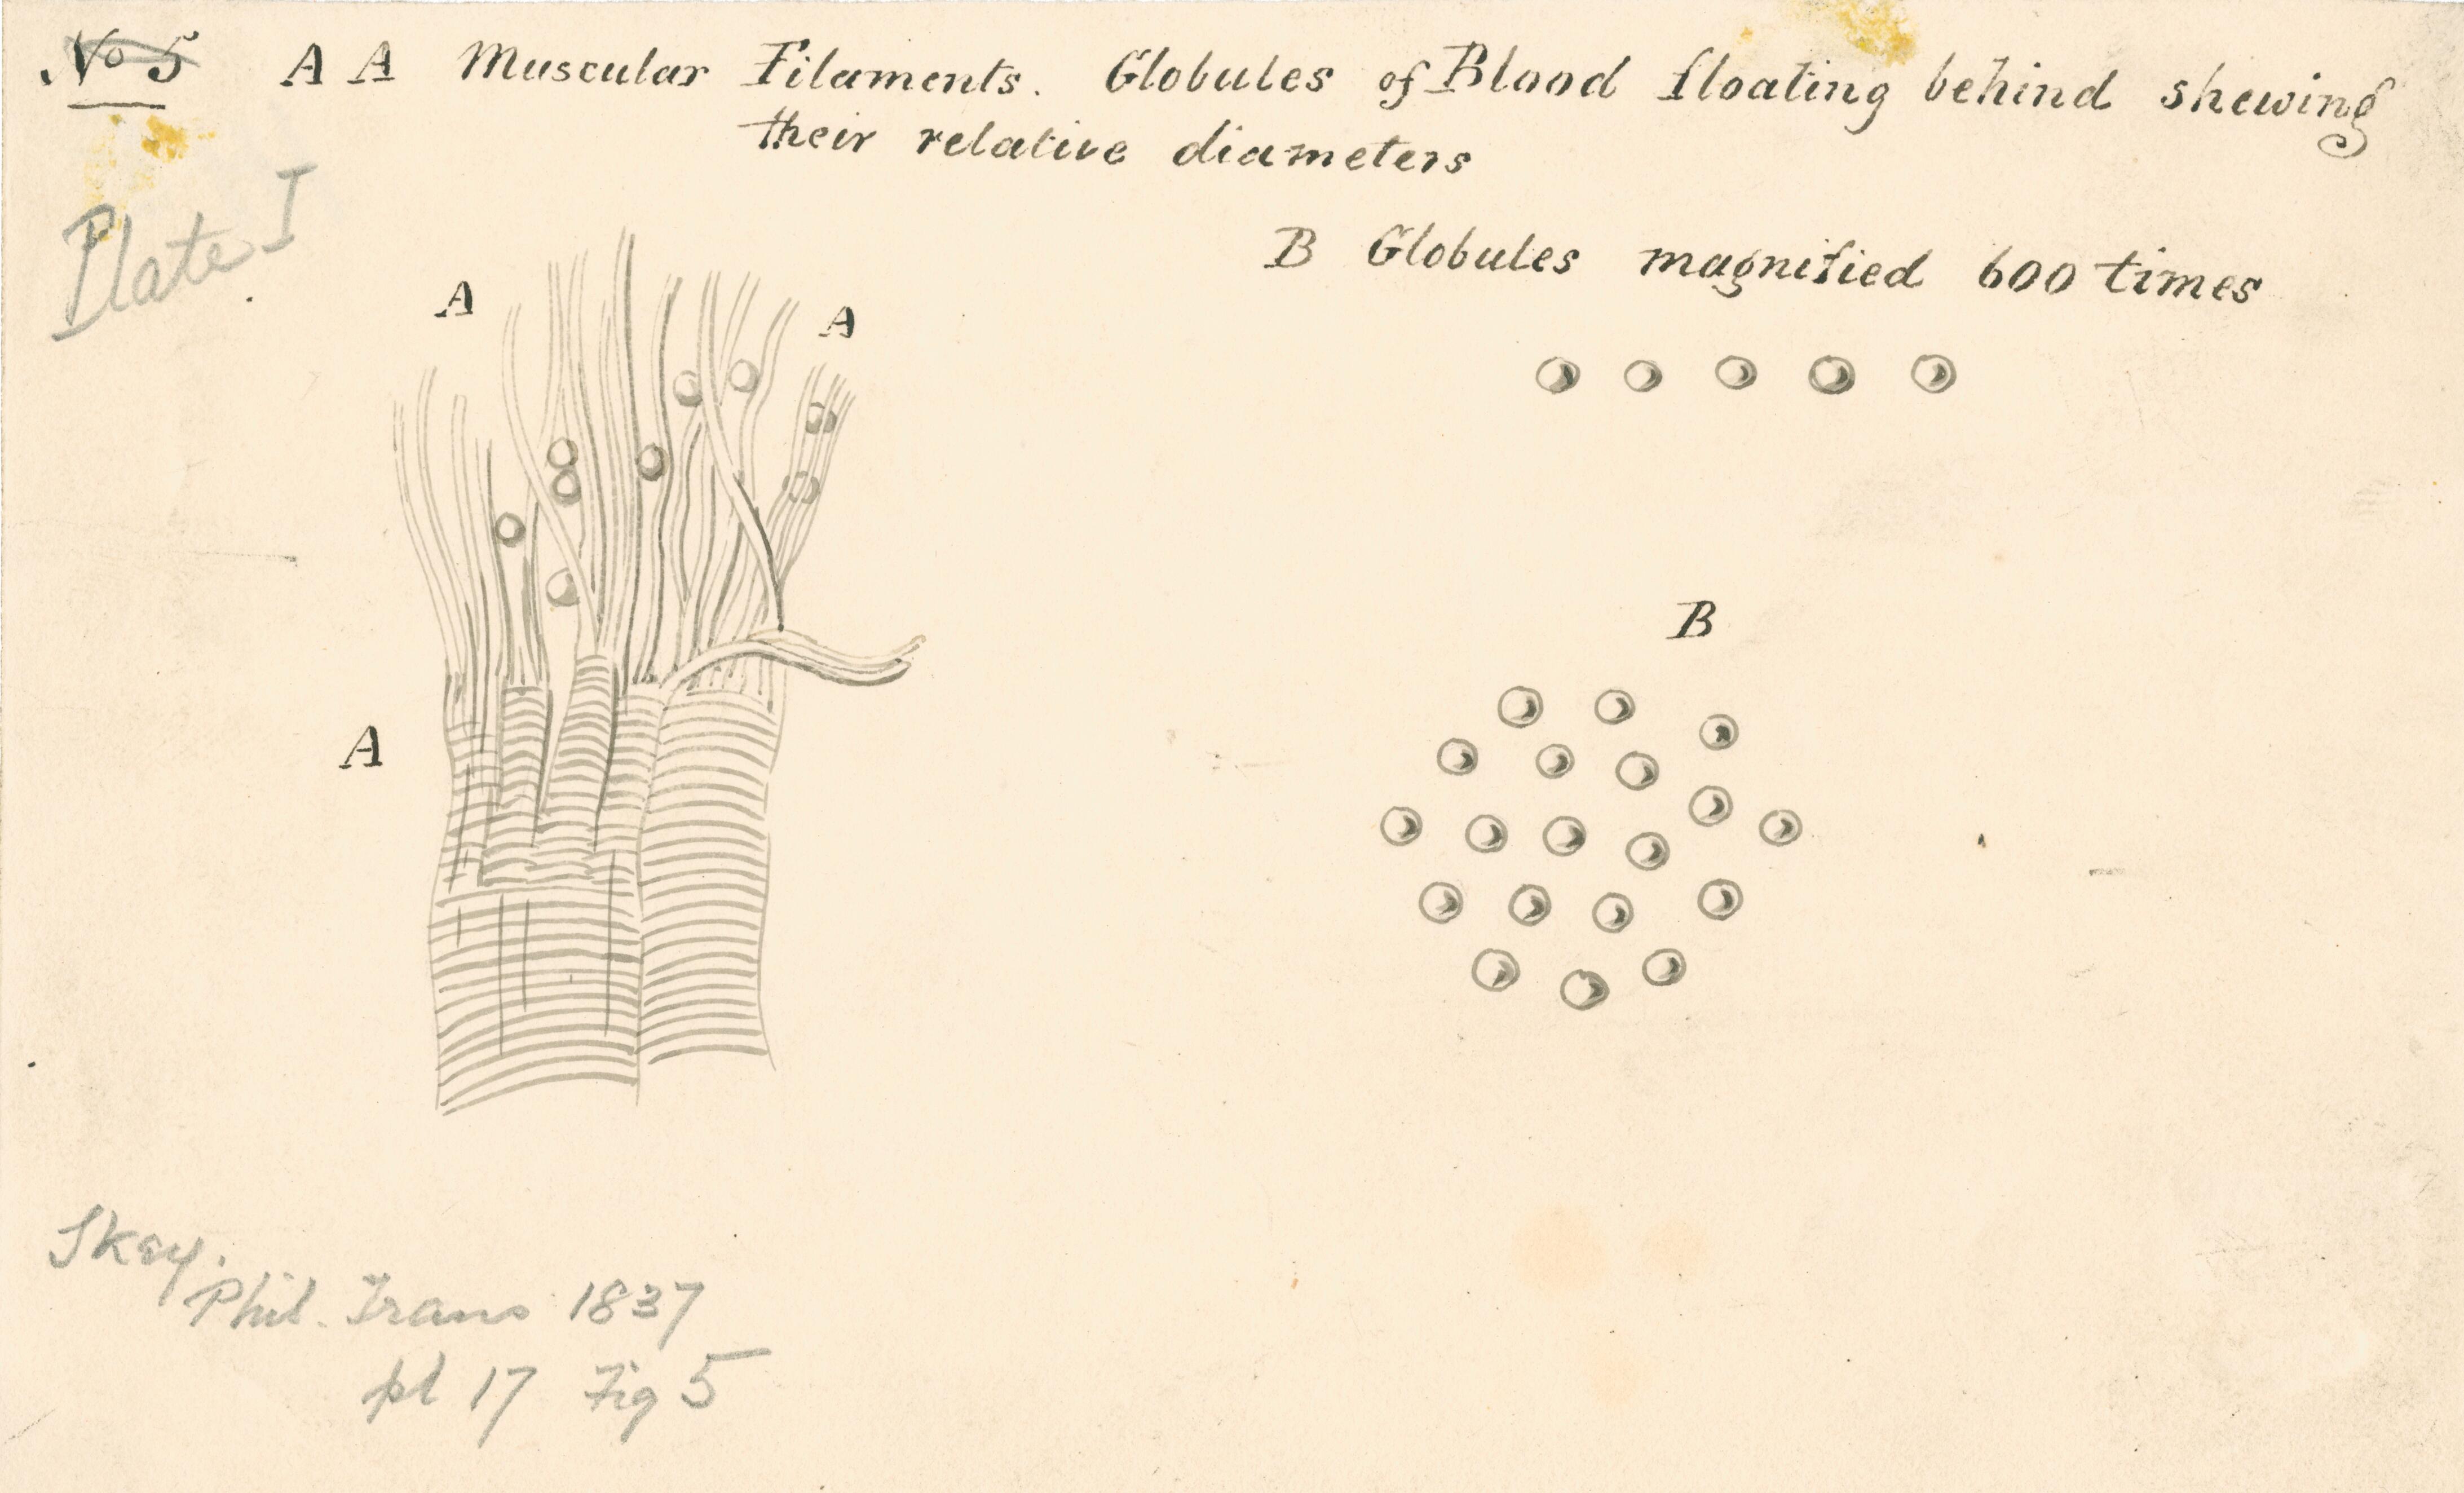 No 5 A A Muscular Filaments. Globules of Blood floating behind shewing
their relative diameters
Plate I
B Globules magnified 600 times
A
A
B
A
Skey.
Phil. Trans 1837
pl 17 Fig 5